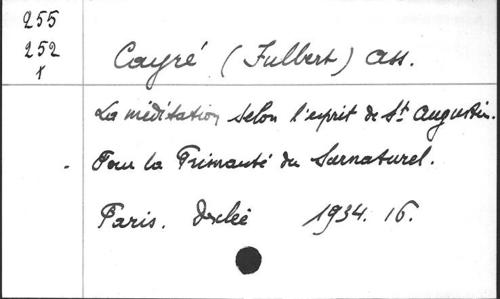 255
252
1
Cayré (Fulbert) Ass.
La méditation selon l'esprit de St Augustin.
Pour la Primauté du Surnaturel.
Paris. Desclée 1934. 16.